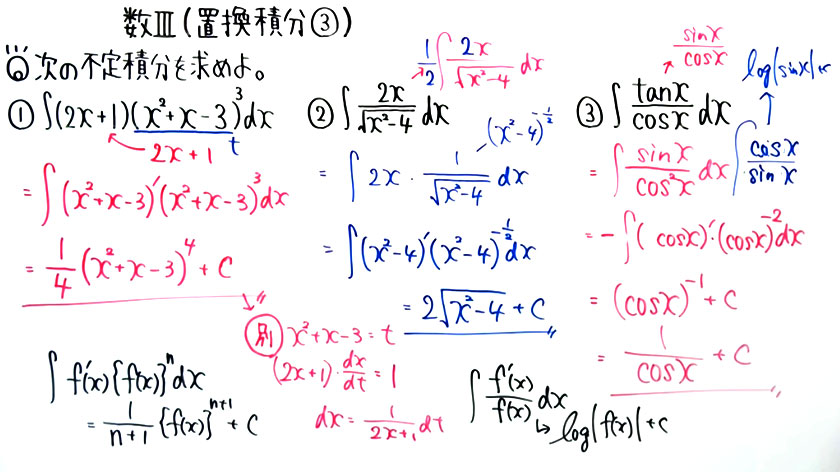 数Ⅲ(置換積分③)
次の不定積分を求めよ。
① ∫(2x+1)(x²+x-3)³dx
2x+1 t
= ∫(x²+x-3)'(x²+x-3)³dx
= 1/4 (x²+x-3)⁴ + C
別 x²+x-3=t
(2x+1)・dx/dt = 1
dx = 1/(2x+1) dt
∫f'(x){f(x)}ⁿdx
= 1/(n+1) {f(x)}ⁿ⁺¹ + C
1/2 ∫ 2x/√(x²-4) dx
② ∫ 2x/√(x²-4) dx
(x²-4)^(-1/2)
= ∫ 2x・1/√(x²-4) dx
= ∫(x²-4)'(x²-4)^(-1/2) dx
= 2√(x²-4) + C
∫ f'(x)/f(x) dx
log|f(x)|+C
sinx/cosx
③ ∫ tanx/cosx dx
= ∫ sinx/cos²x dx
= -∫(cosx)'・(cosx)⁻²dx
= (cosx)⁻¹ + C
= 1/cosx + C
log|sinx|+c
∫ cosx/sinx